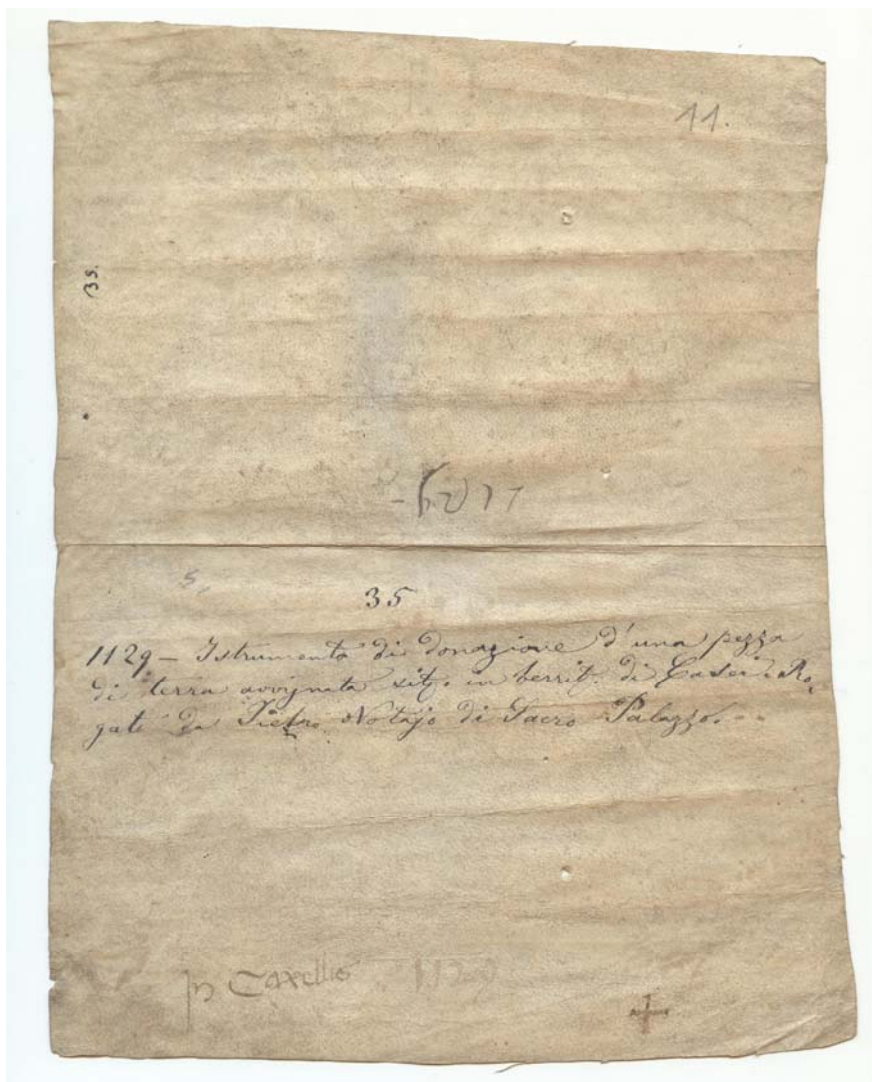 11.
35.
35
1129 – Istrumento di Donazione d'una pezza
di terra avvignata sit. in territ. di Casei. Ro,
gato da Pietro Notajo di Sacro Palazzo.
In Caxellis 1129